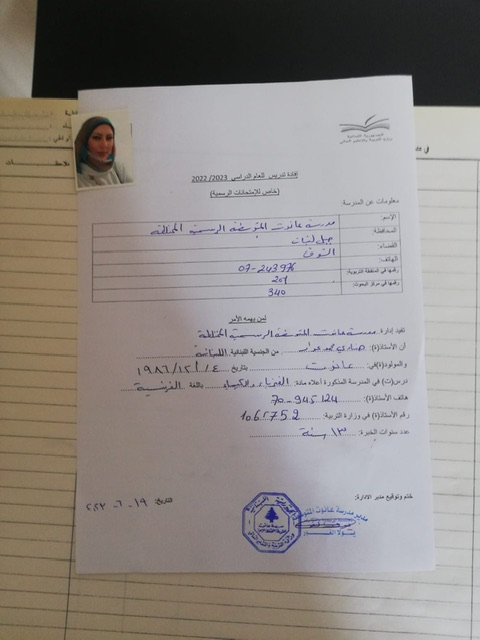 الجمهورية اللبنانية
وزارة التربية والتعليم العالي
إفادة تدريس للعام الدراسي 2022/2023
(خاص للإمتحانات الرسمية)
معلومات عن المدرسة:
الإسم: مدرسة عانوت المتوسطة الرسمية المختلطة
المحافظة: جبل لبنان
القضاء: الشوف
الهاتف: 07-243976
رقمها في المنطقة التربوية:
رقمها في مركز البحوث: 340
لمن يهمه الأمر
تفيد إدارة مدرسة عانوت المتوسطة الرسمية المختلطة
أن الأستاذ(ة) من الجنسية اللبنانية اللبنانية
والمولود(ة) في: عانوت بتاريخ ٤/١٢/١٩٨٦
درس(ت) في المدرسة المذكورة أعلاه مادة: الفيزياء والكيمياء باللغة الفرنسية
هاتف الأستاذ(ة): 70-945124
رقم الأستاذ(ة) في وزارة التربية: 1065752
عدد سنوات الخبرة: ١٣ سنة
ختم وتوقيع مدير الادارة:
التاريخ: ١٩-٦-
مدير مدرسة عانوت